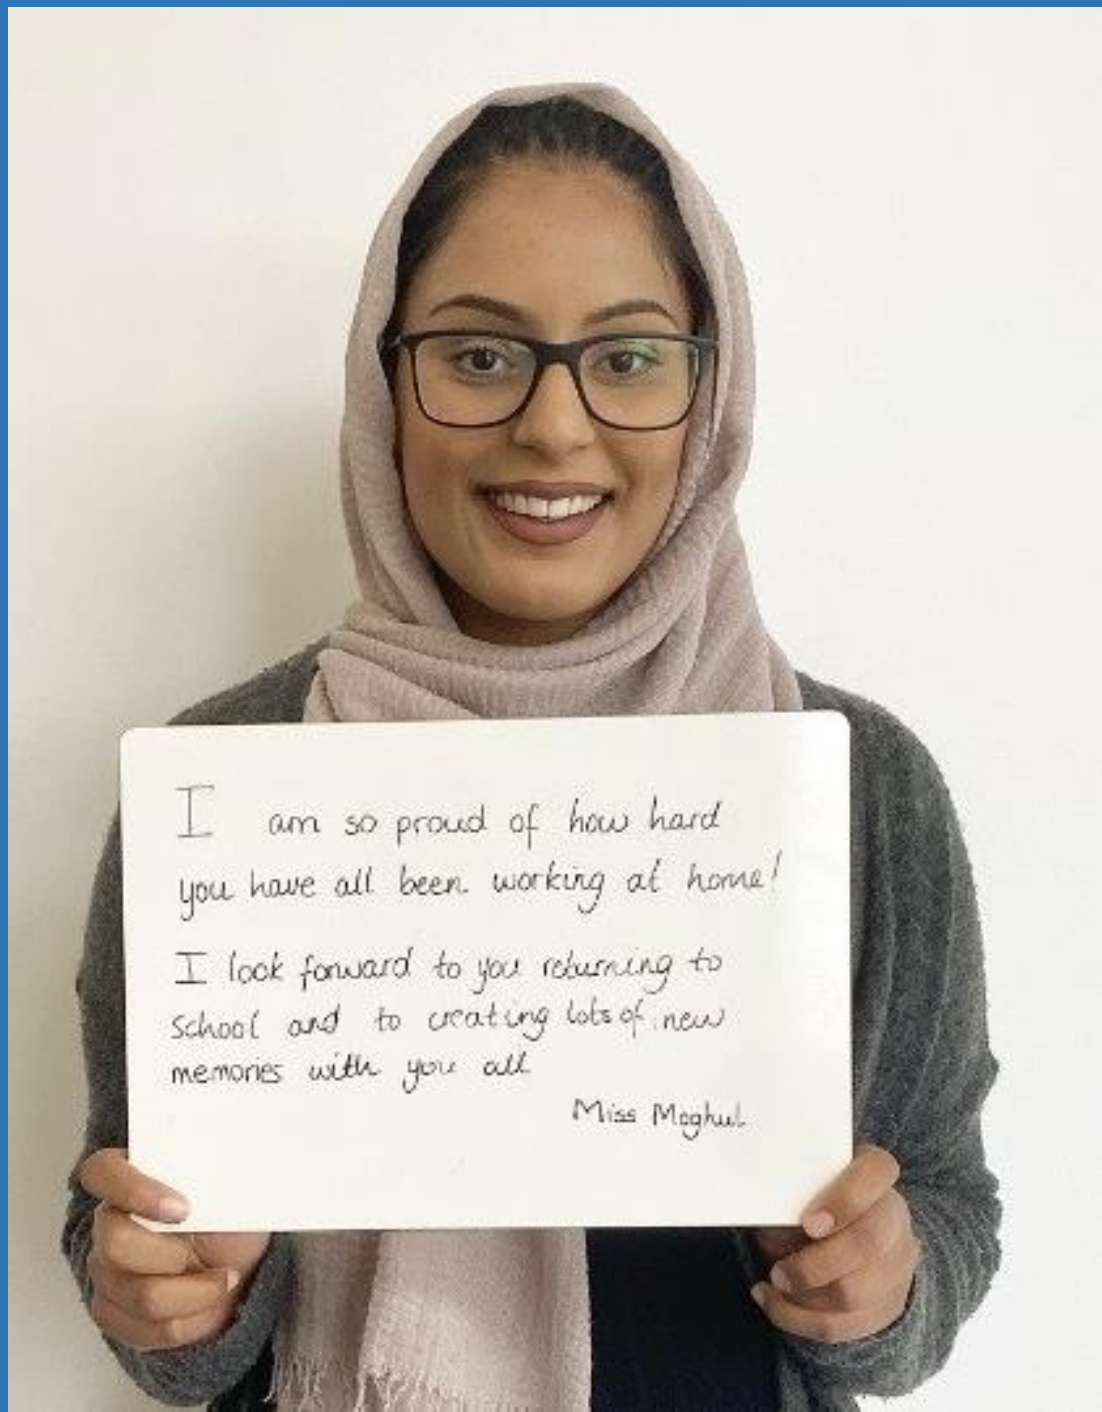 I am so proud of how hard
you have all been working at home!
I look forward to you returning to
school and to creating lots of new
memories with you all
Miss Moghul